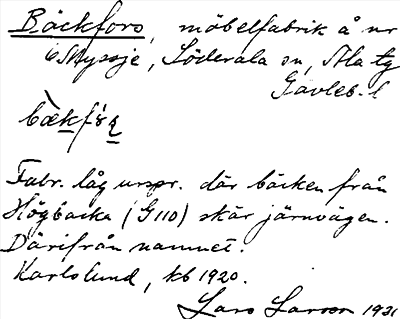 Bäckfors, möbelfabrik å nr
6 Myssje, Söderala sn, Ala tg
Gävleb. l
bækfɷṣ
Fabr. låg urspr. där bäcken från
Högbacka (G110) skär järnvägen.
Därifrån namnet.
Karlslund, kb 1920.
Lars Larson 1931